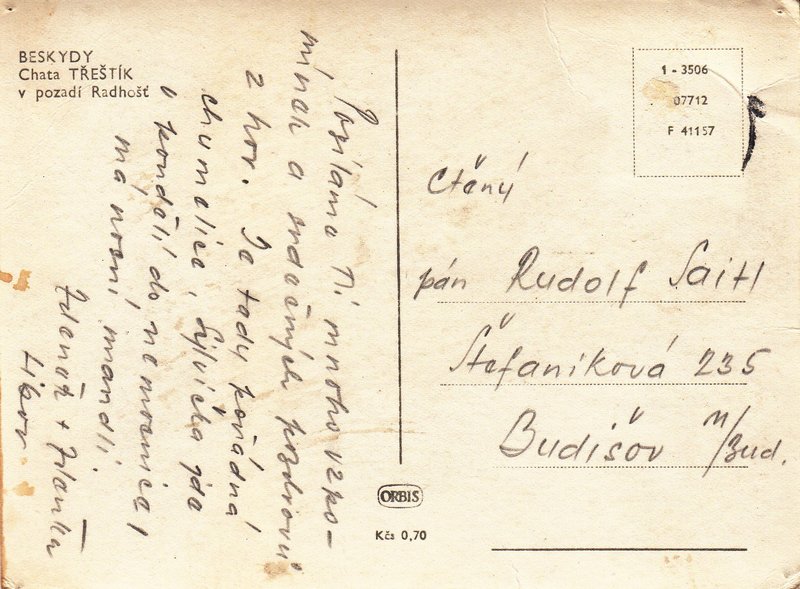 BESKYDY
Chata TŘEŠTÍK
v pozadí Radhošť
Posíláme Ti mnoho vzpo-
mínek a srdečných pozdravů
z hor. Je tady pořádná
chumelice, Sylvička jde
v pondělí do nemocnice,
má nosní mandli.
Zdeněk + Zdenka
Libor.
1 - 3506
07712
F 41157
Ctěný
pán Rudolf Saitl
Štefaniková 235
Budišov n/Bud.
ORBIS
Kčs 0,70